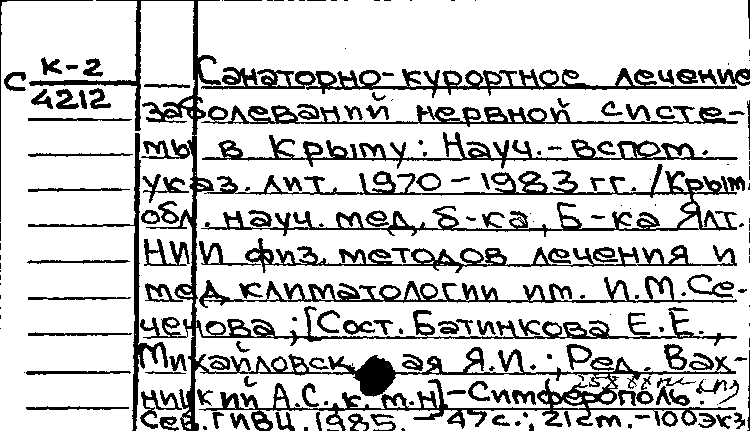 С К-2
4212
Санаторно-курортное лечение
заболеваний нервной систе-
мы в Крыму: Науч.-вспом.
указ. лит. 1970-1983 гг. /Крым.
обл. науч. мед. б-ка, Б-ка Ялт.
НИИ физ. методов лечения и
мед. климатологии им. И.М.Се-
ченова; [Сост. Батинкова Е.Е.,
Михайловская Я.И.; Ред. Вах-
ницкий А.С., к.м.н]-Симферополь:
Сев. ГИВЦ, 1985. - 47с.; 21см.-100экз